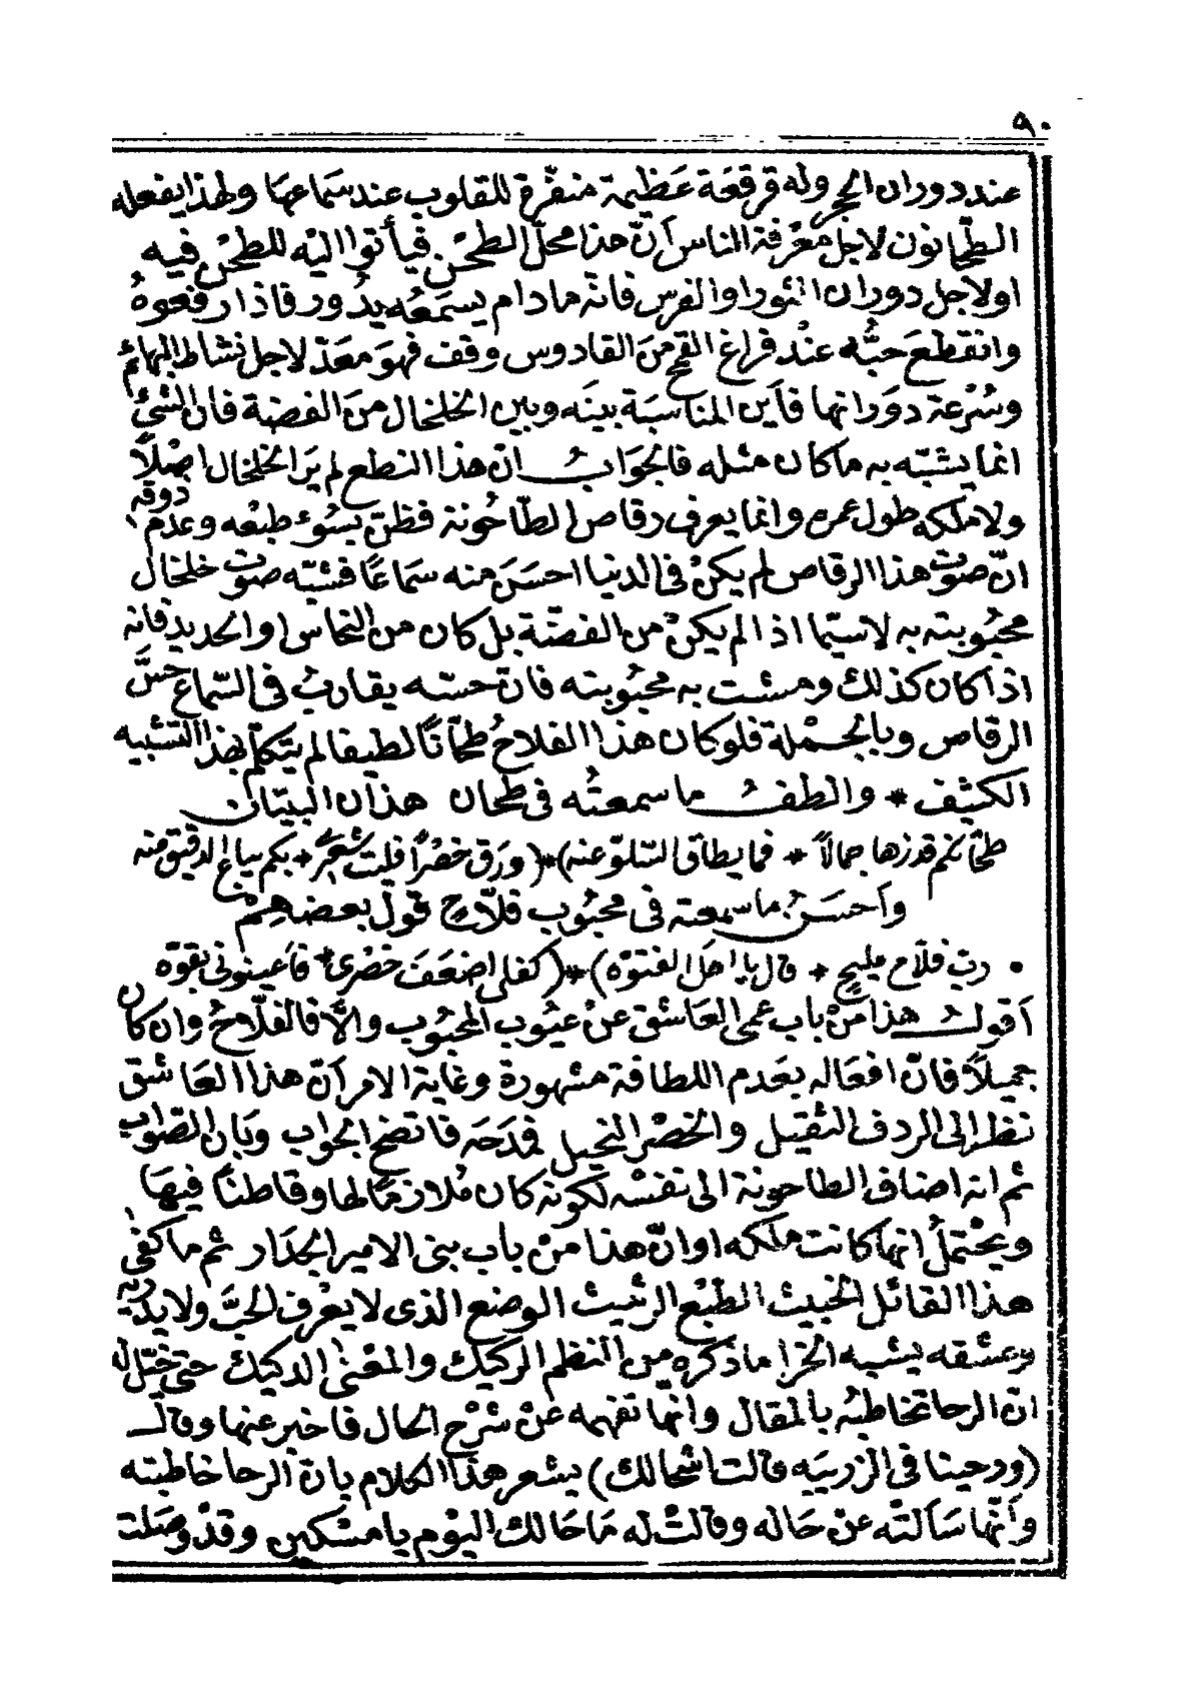 ٩٠
عند دوران الحجر وله قرقعَة عَظيمة منفّرة للقلوب عند سَماعهَا ولهذا يفعله
الطحّانون لاجل معْرفة الناس أنّ هذا محلّ الطحْن فيأتوا اليْه للطحْن فيه
او لاجل دوران الثورا والفرس فانّه مادام يسمَعُه يدُور فاذا رفعوهُ
وانقطعَ حبُّه عنْد فراغ القمح منَ القادوس وقف فهوَ معَدّ لاجل نشاط البهائم
وسُرْعة دوَراتها فأين المناسَبَة بينَه وبين الخلخال منَ الفضة فان الشئ
انما يشبّه به ما كان مثله فالجوَابُ انّ هذا النطع لم يَرَ الخلخال اصْلاً
ولا ملكه طول عمره وانما يعرف رقاص الطّاحُونة فظنّ بسُوء طبْعه وعدم ذوقه
انّ صوْت هذا الرقاص لم يكنْ فى الدنيا احسَنَ منه سمَاعًا فشبّه صوْت خلخال
محبُوبته به لا سيّما اذا لم يكنْ من الفضّة بل كان من النحاس او الحديد فانه
اذا كان كذلك ومشت به محبُوبته فانّ حسّه يقاربُ فى السّماع حسَّ
الرقاص وبالجمْلة فلو كان هذا الفلاحُ طحّانًا لطيفا لم يتكلّم بهذا التشبيه
الكثيف * والطفُ ما سمعتُه فى طحان هذان البيتان
طحّانكم قد زها جمالاً * فما يطاق السّلوّ عنه)*(ورَق خصْرًا فليت شعرى * بكم يباع الدقيق منه
وأحسَنُ ما سمعته فى محبُوب فلّاحٍ قولُ بعضهِمْ
• ربّ فلّاح مليحٍ * قال يا اهلَ الفتوّه)*(كفلى اضعَفَ خصْرى * فأعينونى بقوّه
أقولُ هذا منْ باب عمى العَاشق عنْ عيُوب المحْبُوب والّا فالفلّاحُ وان كان
جميلاً فانّ افعاله بعَدم اللطافة مشهورة وغاية الامر أنّ هذا العَاشق
نظر الى الردف الثقيل والخصْر النحيل فمدَحَه فاتضح الجواب وبَان الصّواب
ثم انه اضاف الطاحونة الى نفسْه لكونه كان مُلازمًا لها وقاطنًا فيهَا
ويحْتملُ انها كانت ملكه او انّ هذا منْ باب بنى الامير الجدَار ثم ما كفى
هذا القائل الخبيث الطبْع الرثيث الوضع الذى لا يعْرف الحبَّ ولا يدريه
وعشقه يشبه الخرا ما ذكره من النظم الركيك والمعْنى الدكيك حتى خيّل له
انّ الرحا تخاطبُه بالمقال وانّها تفهمه عنْ شرْح الحال فاخبر عنها وقال
(ورحينا فى الزريبَه قالت اشحالك) يشعر هذا الكلام بانّ الرحا خاطبته
وأنّها سَألتْه عنْ حَاله وقالتْ له مَا حَالك اليْوم يا مسْكين وقدْ وصَلت